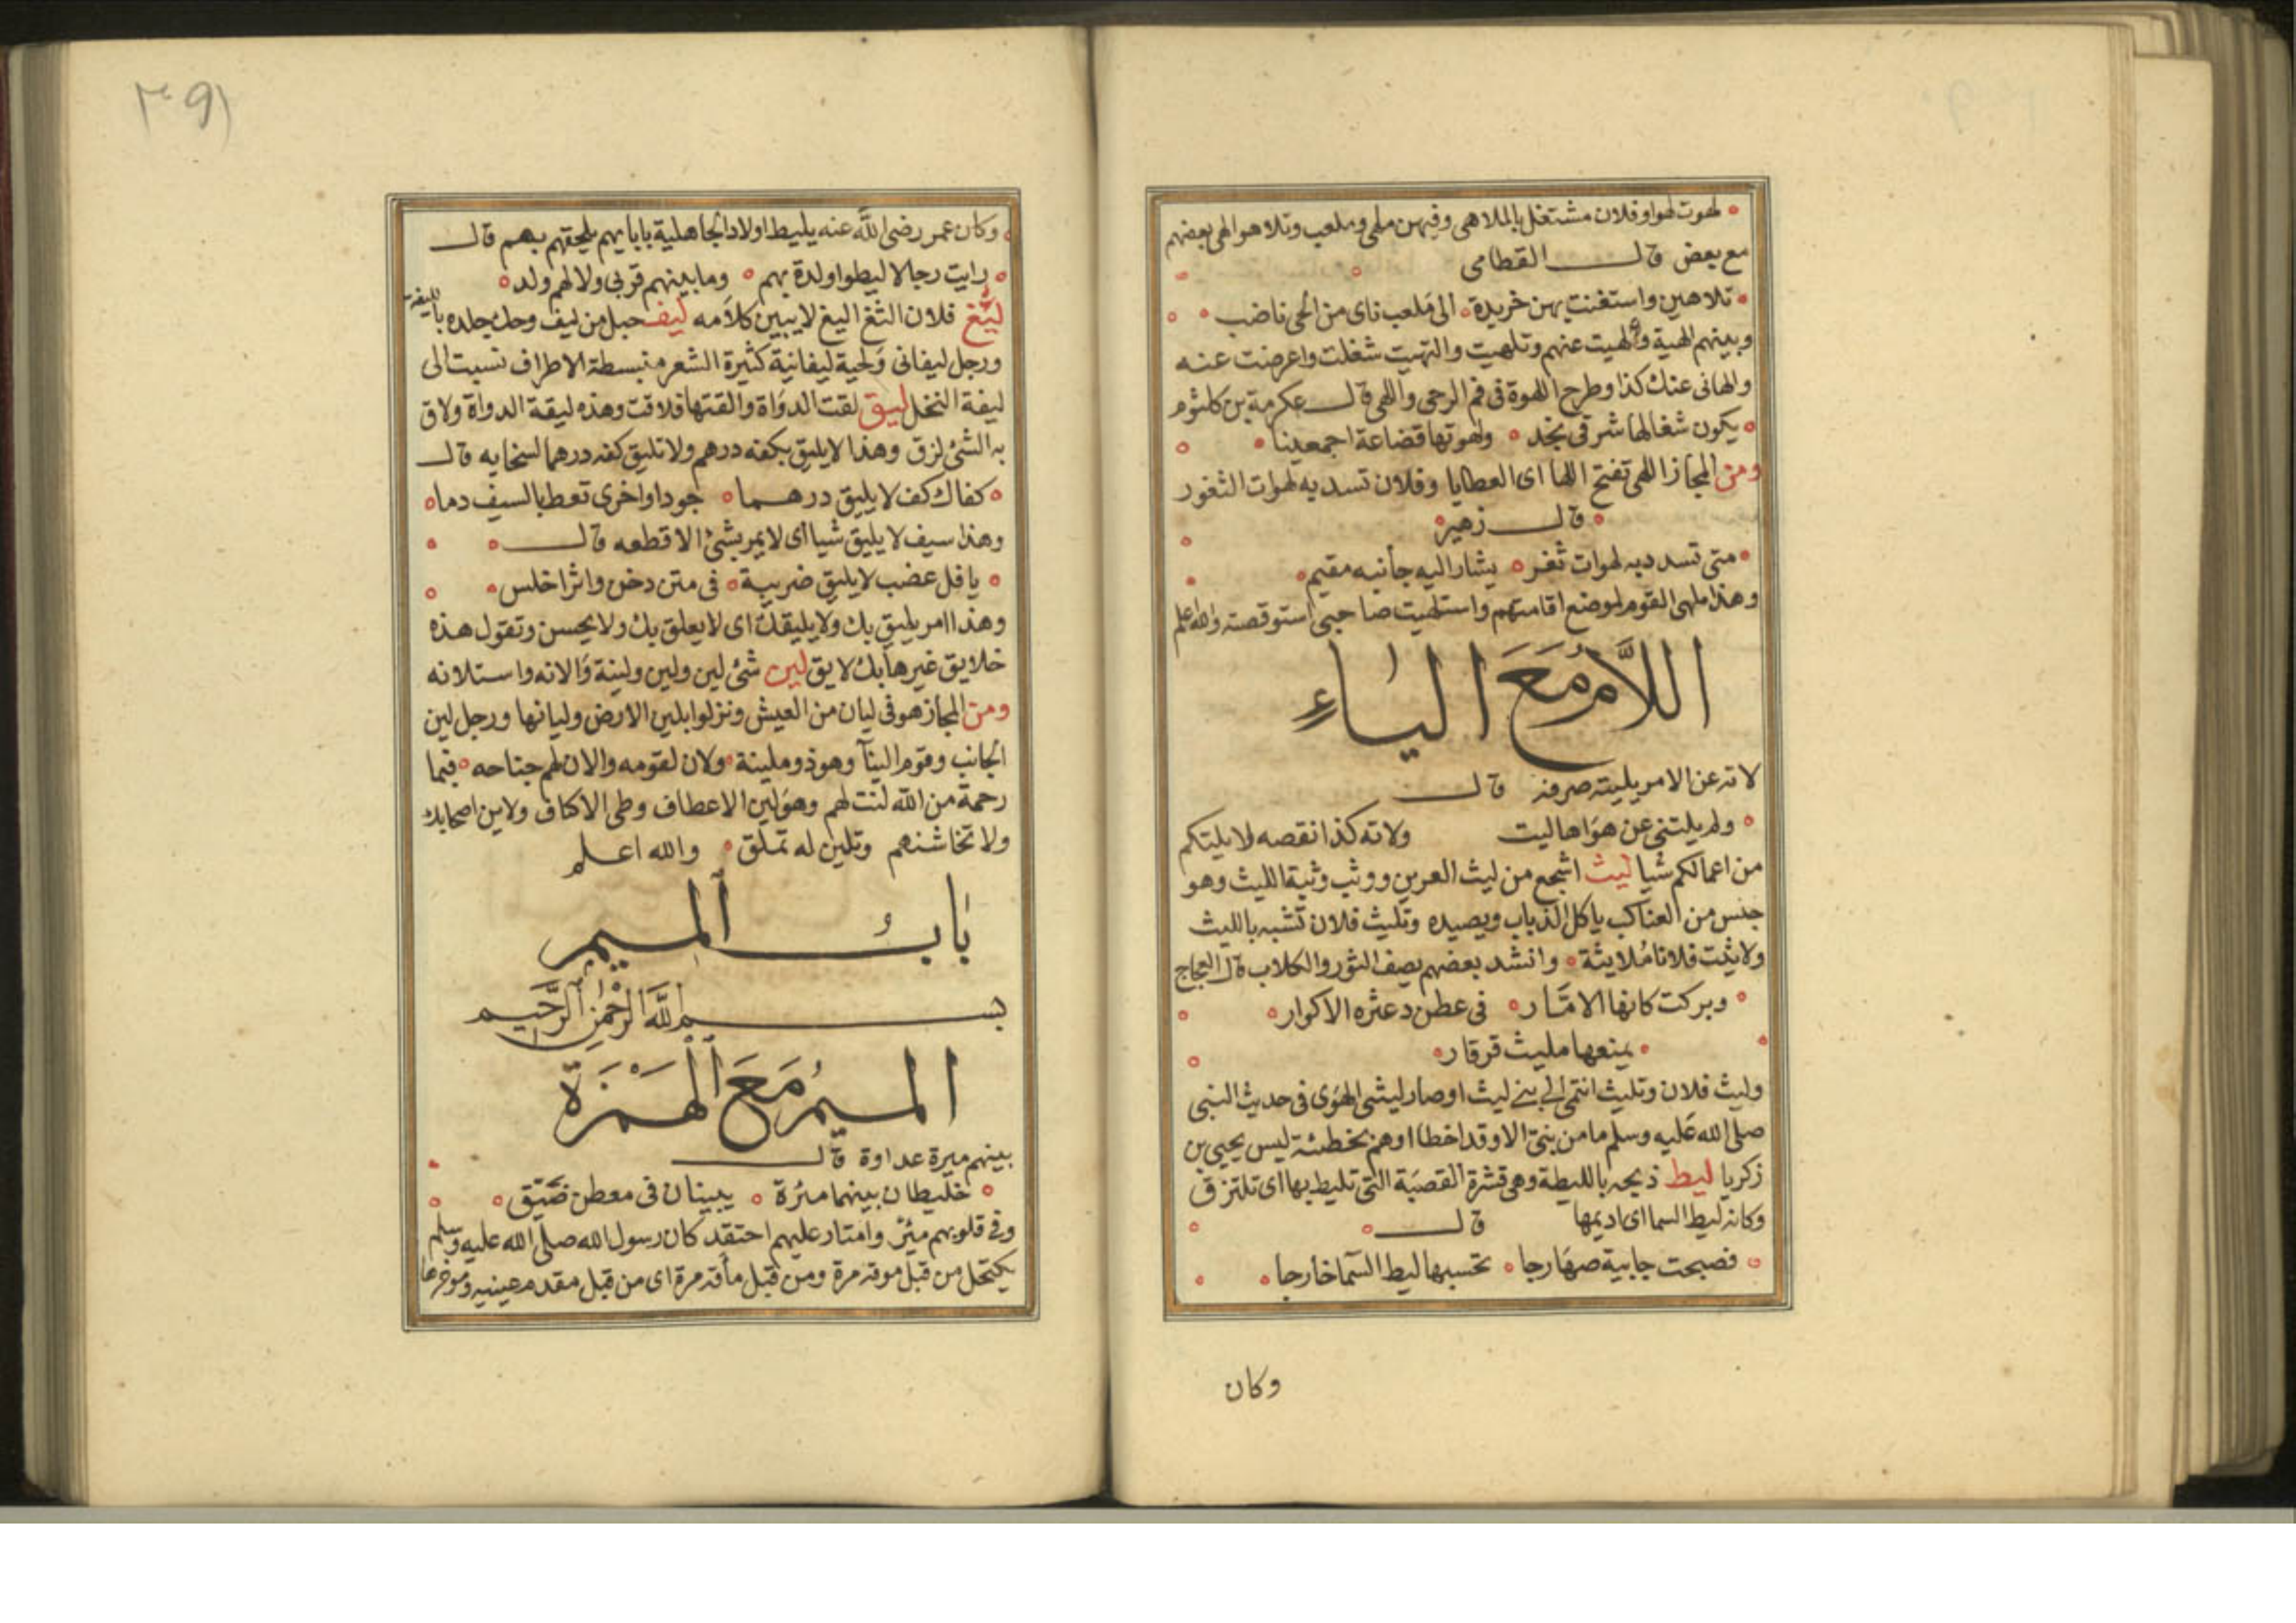 لهوت لهوا وفلان مشتغل بالملاهى وفيهن ملهى وملعب وتلاهوا لهى بعضهم
مع بعض قال القطامى
تلاهين واستغنت بهن خريدة الى ملعب ناى من الحى ناضب
وبينهم الهية وألهيت عنهم وتلهيت والتهيت شغلت واعرضت عنه
والهانى عنك كذا وطرح اللهوة فى فم الرحى واللهى قال عكرمة بن كلثوم
يكون ثفالها شرقى نجد ولهوتها قضاعة اجمعينا
ومن المجاز اللهى تفتح اللها اى العطايا وفلان تسد به لهوات الثغور
قال زهير
متى تسدد به لهوات ثغر يشار اليه جانبه مقيم
وهذا ملهى القوم لموضع اقامتهم واستلهيت صاحبى استوقفته والله اعلم
اللام مع الياء
لاته عن الامر يليته صرفه قال
ولم يلتنى عن هواها ليت ولاته كذا نقصه لا يلتكم
من اعمالكم شيا ليث اشجع من ليث العرين ووثب وثبة الليث وهو
جنس من العناكب ياكل الذباب ويصيده وتليث فلان تشبه بالليث
ولايثت فلانا ملايثة وانشد بعضهم يصف الثور والكلاب قال العجاج
وبركت كانها الامار فى عطن دعثره الاكوار
يمنعها مليث قرقار
وليث فلان وتليث انتمى الى بنى ليث او صار ليثى الهوى فى حديث النبى
صلى الله عليه وسلم ما من بنى الا وقد اخطا اوهم بخطئة ليس يحيى بن
زكريا ليط ذبحه بالليطة وهى قشرة القصبة التى تليط بها اى تلتزق
وكانه ليط السما اى اديمها قال
فصبحت جابية صهارجا تحسبها ليط السما خارجا
وكان
٣٩١
وكان عمر رضى الله عنه يليط اولاد الجاهلية بابايهم يلحقهم بهم قال
رايت رجالا ليطوا ولدة بهم وما بينهم قربى ولا لهم ولد
ليغ فلان الثغ اليغ لا يبين كلامه ليف حبل من ليف وحك جلده بالليفة
ورجل ليفانى ولحية ليفانية كثيرة الشعر منبسطة الاطراف نسبت الى
ليفة النخل ليق لقت الدواة والقتها فلاقت وهذه ليقة الدواة ولاق
به الشئ لزق وهذا لا يليق بكفه درهم ولا تليق كفه درهما لسخايه قال
كفاك كف لا يليق درهما جودا واخرى تعط بالسيف دما
وهذا سيف لا يليق شيا اى لا يمر بشئ الا قطعه قال
يافل عضب لا يليق ضريبة فى متن دخن واثر اخلس
وهذا امر يليق بك ولا يليقك اى لا يعلق بك ولا يحسن وتقول هذه
خلايق غيرها بك لايق لين شئ لين ولين ولينة والانه واستلانه
ومن المجاز هو فى ليان من العيش ونزلوا بلين الارض وليانها ورجل لين
الجانب وقوم الينآ وهو ذو ملينة ولان لقومه والان لهم جناحه فبما
رحمة من الله لنت لهم وهو لين الاعطاف وطى الاكناف ولاين اصحابك
ولا تخاشنهم وتلين له تملق والله اعلم
باب الميم
بسم الله الرحمن الرحيم
الميم مع الهمزة
بينهم ميرة عداوة قال
خليطان بينهما مئرة يبيتان فى معطن ضيق
وفى قلوبهم مئر وامتار عليهم احتقد كان رسول الله صلى الله عليه وسلم
يكتحل من قبل موقه مرة ومن قبل مأقه مرة اى من قبل مقدم عينيه وموخرها